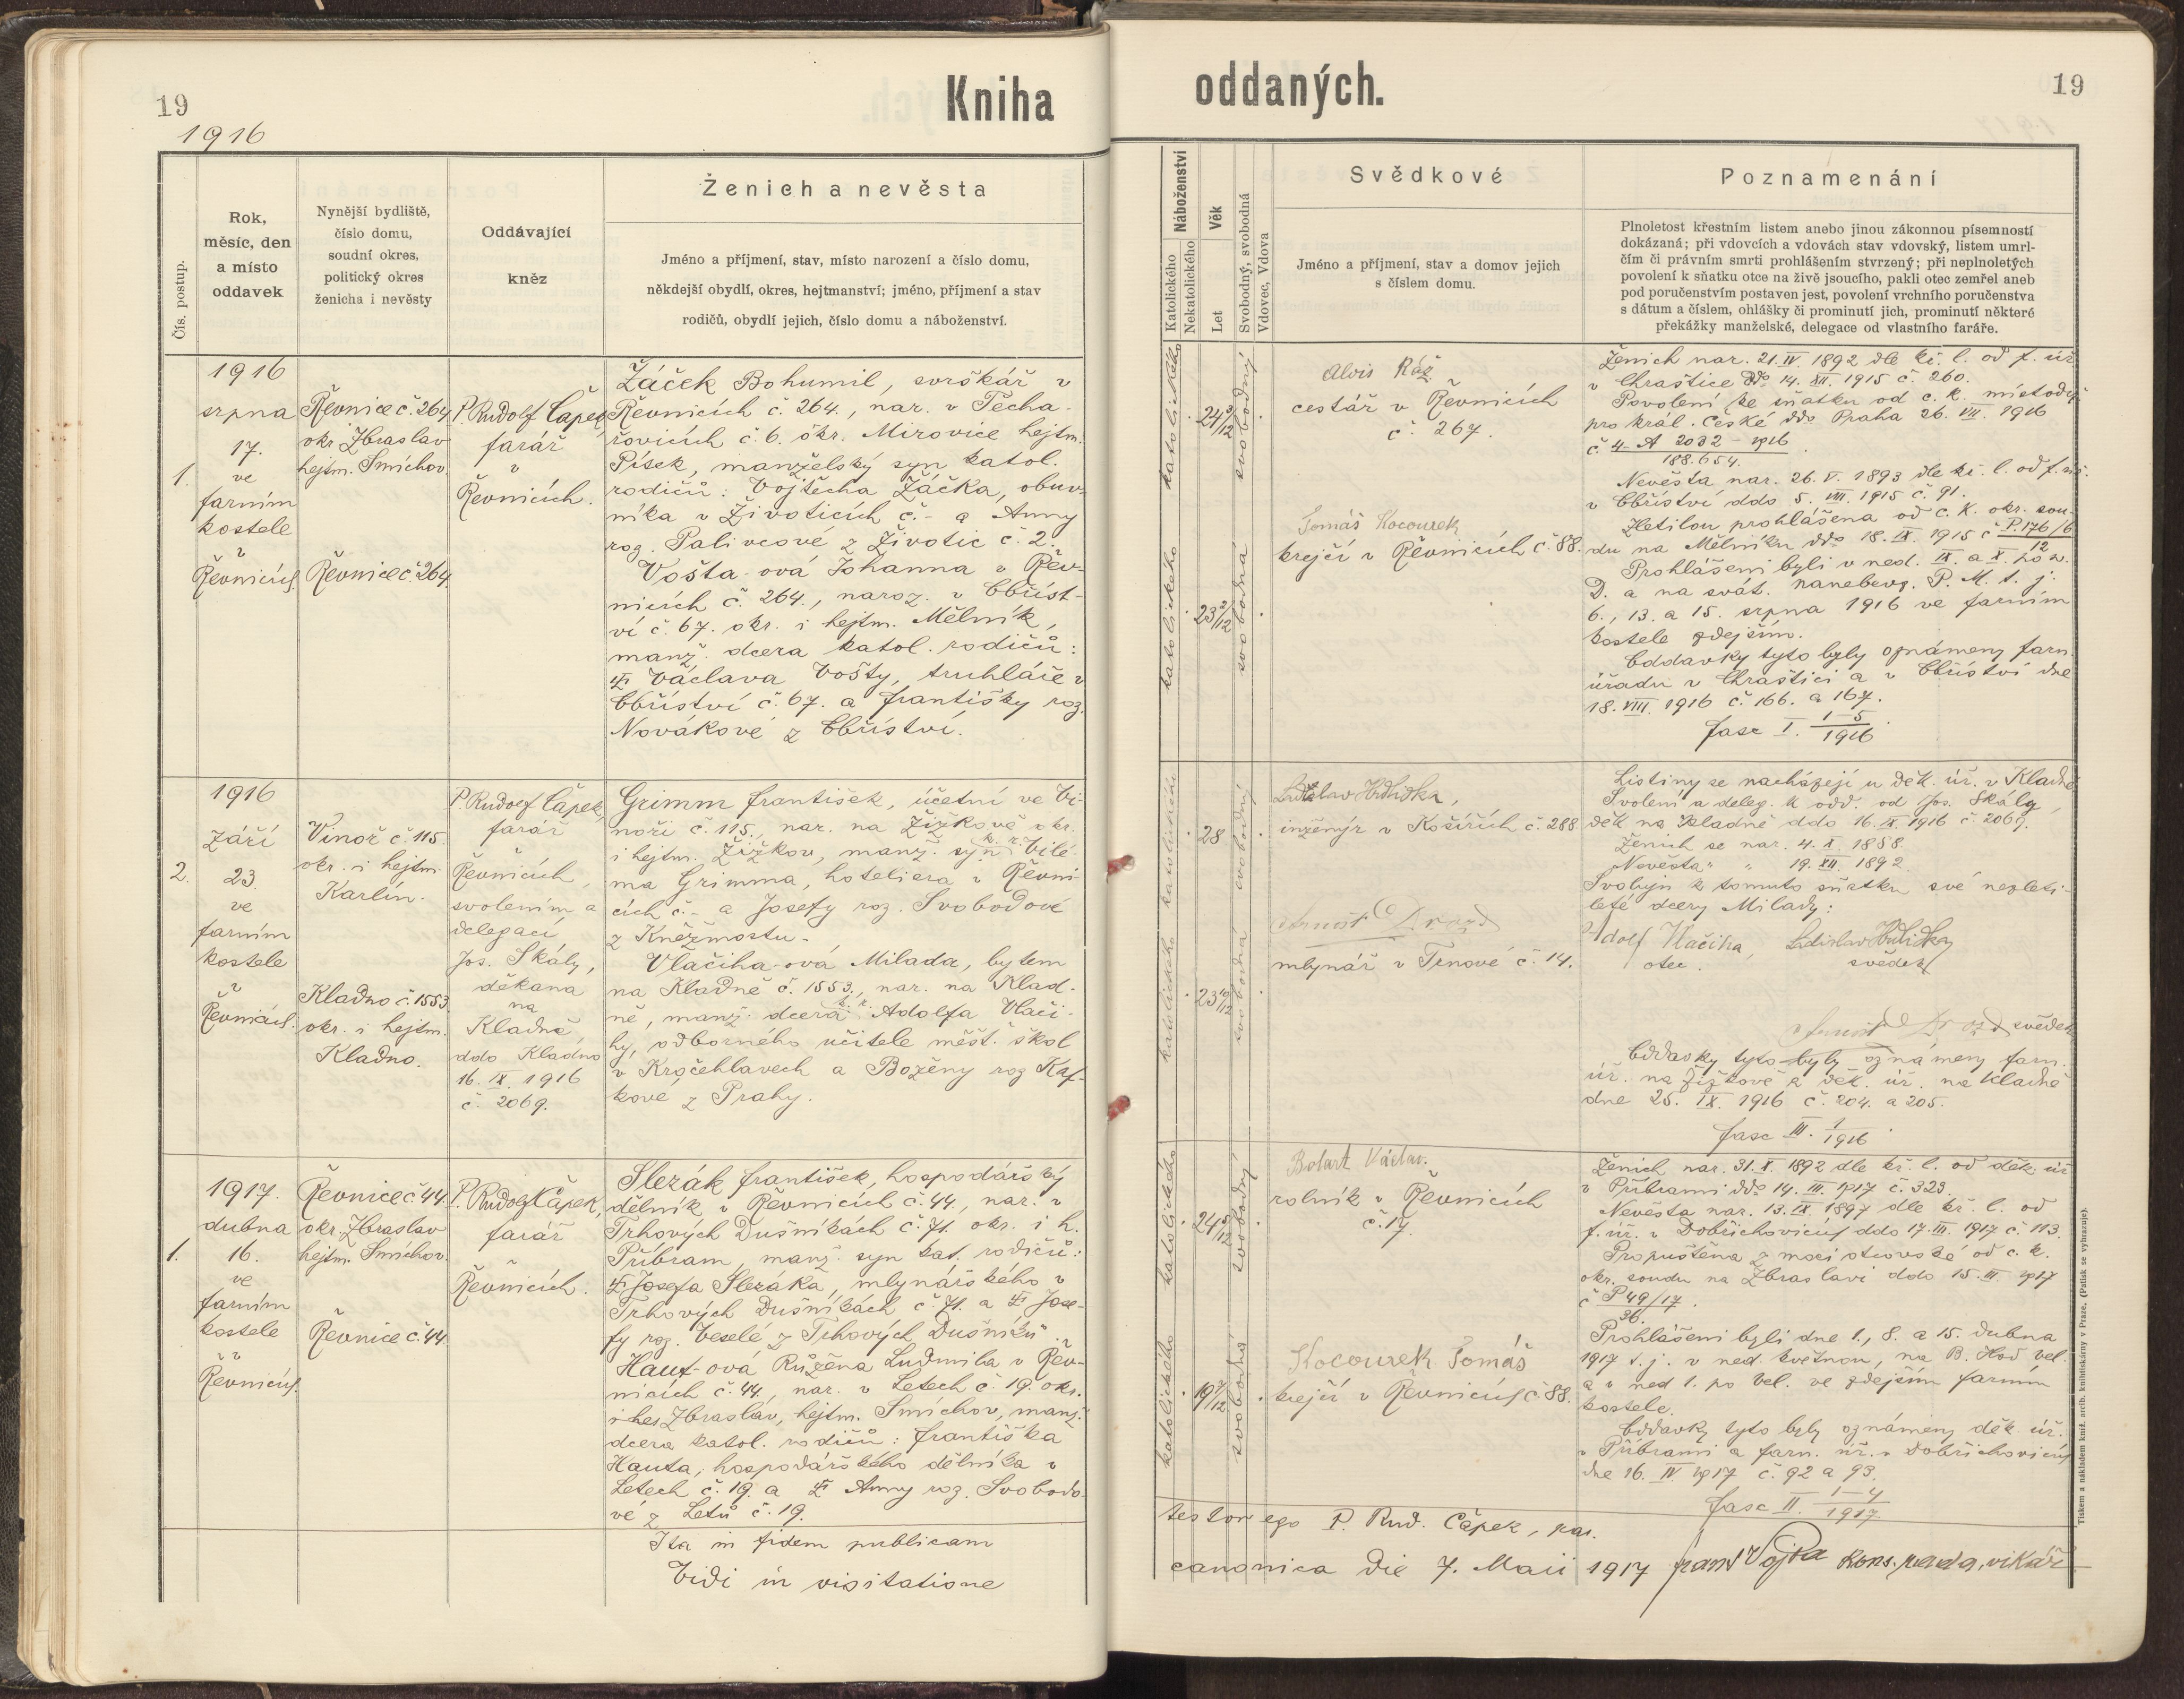 19
Kniha
1916
Čís. postup.
Rok,
měsíc, den
a místo
oddavek
Nynější bydliště,
číslo domu,
soudní okres,
politický okres
ženicha i nevěsty
Oddávající
kněz
Ženich a nevěsta
Jméno a příjmení, stav, místo narození a číslo domu,
někdejší obydlí, okres, hejtmanství; jméno, příjmení a stav
rodičů, obydlí jejich, číslo domu a náboženství.
1.
1916
srpna
17.
ve
farním
kostele
v
Řevnicích.
Řevnice č. 264
okr. Zbraslav
hejtm. Smíchov.
Řevnice č. 264.
P. Rudolf Čápek,
farář
v
Řevnicích.
Žáček Bohumil, svrškář v
Řevnicích č. 264., nar. v Pecha-
řovicích č. 6. okr. Mirovice hejtm.
Písek, manželský syn katol.
rodičů: Vojtěcha Žáčka, obuv-
níka v Životicích č. - a Anny
roz. Palivcové z Životic č. 2.
Vošta-ová Johanna v Řev-
nicích č. 264., naroz. v Obříst-
ví č. 67. okr. i hejtm. Mělník,
manž. dcera katol. rodičů:
Václava Vošty, truhláře v
Obříství č. 67. a Františky roz.
Novákové z Obříství.
2.
1916
Září
23.
ve
farním
kostele
v
Řevnicích.
Vinoř č. 115.
okr. i hejtm.
Karlín.
Kladno č. 1553.
okr. i hejtm.
Kladno.
P. Rudolf Čápek,
farář
v
Řevnicích,
svolením a
delegací
Jos. Skály,
děkana
na
Kladně
ddo Kladno
16. IX. 1916
č. 2069.
Grimm František, účetní ve Vi-
noři č. 115., nar. na Žižkově okr.
i hejtm. Žižkov, manž. syn k. r. Vilé-
ma Grimma, hoteliera v Řevni-
cích č. - a Josefy roz. Svobodové
z Kněžmostu.
Vlačiha-ová Milada, bytem
na Kladně č. 1553., nar. na Klad-
ně, manž. dcera k. r. Adolfa Vlači-
hy, odborného učitele měšť. škol
v Kročehlavech a Boženy roz. Kaf-
kové z Prahy.
1.
1917.
dubna
16.
ve
farním
kostele
v
Řevnicích.
Řevnice č. 44.
okr. Zbraslav
hejtm. Smíchov.
Řevnice č. 44.
P. Rudolf Čápek,
farář
v
Řevnicích.
Slezák František, hospodářský
dělník v Řevnicích č. 44., nar. v
Trhových Dušníkách č. 71. okr. i h.
Příbram, manž. syn kat. rodičů:
Josefa Slezáka, mlynářského v
Trhových Dušníkách č. 71. a Jose-
fy roz. Veselé z Trhových Dušníků.
Hauf-ová Růžena Ludmila v Řev-
nicích č. 44., nar. v Letech č. 19. okr.
Zbraslav, hejtm. Smíchov, manž.
dcera katol. rodičů: Františka
Haufa, hospodářského dělníka v
Letech č. 19. a Anny roz. Svobodo-
vé z Letů č. 19.
Ita in fidem publicam
Vidi in visitatione
oddaných.
19
Náboženství
Katolického
Nekatolického
Věk
Let
Svobodný, svobodná
Vdovec, Vdova
Svědkové
Jméno a příjmení, stav a domov jejich
s číslem domu.
Poznamenání
Plnoletost křestním listem anebo jinou zákonnou písemností
dokázaná; při vdovcích a vdovách stav vdovský, listem umrl-
čím či právním smrti prohlášením stvrzený; při neplnoletých
povolení k sňatku otce na živě jsoucího, pakli otec zemřel aneb
pod poručenstvím postaven jest, povolení vrchního poručenstva
s dátum a číslem, ohlášky či prominutí jich, prominutí některé
překážky manželské, delegace od vlastního faráře.
katolického
24 3/12
svobodný
katolického
23 2/12
svobodná
Alois Ráž
cestář v Řevnicích
č. 267.
Tomáš Kocourek
krejčí v Řevnicích č. 88.
Ženich nar. 21. IV. 1892 dle kř. l. od f. úř.
v Chraštice ddo 14. XII. 1915 č. 260.
Povolení ke sňatku od c. k. místodrž.
pro král. České ddo Praha 26. VII. 1916
č. 4-A 2032 - 1916
188.654.
Nevěsta nar. 26. V. 1893 dle kř. l. od f. úř.
v Obříství ddo 5. VIII. 1915 č. 91.
Zletilou prohlášena od c. k. okr. sou-
du na Mělníku ddo 18. IX. 1915 č. P. 176/6
12
Prohlášeni byli v ned. IX. a X. po sv.
D. a na svát. nanebevz. P. M. t. j.
6., 13. a 15. srpna 1916 ve farním
kostele zdejším.
Oddavky tyto byly oznámeny farn.
úřadu v Chraštici a v Obříství dne
18. VIII. 1916 č. 166. a 167.
fasc I. 1-5
1916
katolického
28
svobodný
katolického
23 10/12
svobodná
Ladislav Hudička,
inženýr v Košířích č. 288.
Arnošt Drozd
mlynář v Trnové č. 14.
Listiny se nacházejí u děk. úř. v Kladně
Svolení a deleg. k odd. od Jos. Skály,
děk. na Kladně ddo 16. IX. 1916 č. 2069.
Ženich se nar. 4. X. 1888.
Nevěsta " " 19. XII. 1892
Svoluji k tomuto sňatku své nezleti-
leté dcery Milady:
Adolf Vlačiha, Ladislav Hudička
otec. svědek
Arnošt Drozd svědek
Oddavky tyto byly oznámeny farn.
úř. na Žižkově a děk. úř. na Kladně
dne 25. IX. 1916 č. 204. a 205.
fasc III. 1
1916
katolického
24 5/12
svobodný
katolického
19 7/12
svobodná
Václav.
rolník v Řevnicích
č. 17.
Kocourek Tomáš
krejčí v Řevnicích č. 88.
Ženich nar. 31. X. 1892 dle kř. l. od děk. úř.
v Příbrami ddo 14. III. 1917 č. 323.
Nevěsta nar. 13. IX. 1897 dle kř. l. od
f. úř. v Dobřichovicích ddo 17. III. 1917 č. 113.
Propuštěna z moci otcovské od c. k.
okr. soudu na Zbraslavi ddo 15. III. 1917
č P 49/17.
36.
Prohlášeni byli dne 1., 8. a 15. dubna
1917 t. j. v ned. květnou, na B. Hod vel.
a v ned 1. po Vel. ve zdejším farním
kostele.
Oddavky tyto byly oznámeny děk. úř.
v Příbrami a farn. úř. v Dobřichovicích
dne 16. IV. 1917 č. 92 a 93.
fasc II. 1-4
1917.
testor ego P. Rud. Čápek, par.
canonica die 7. Maii 1917 vikář
Tiskem a nákladem kníž. arcib. knihtiskárny v Praze. (Patisk se vyhrazuje).